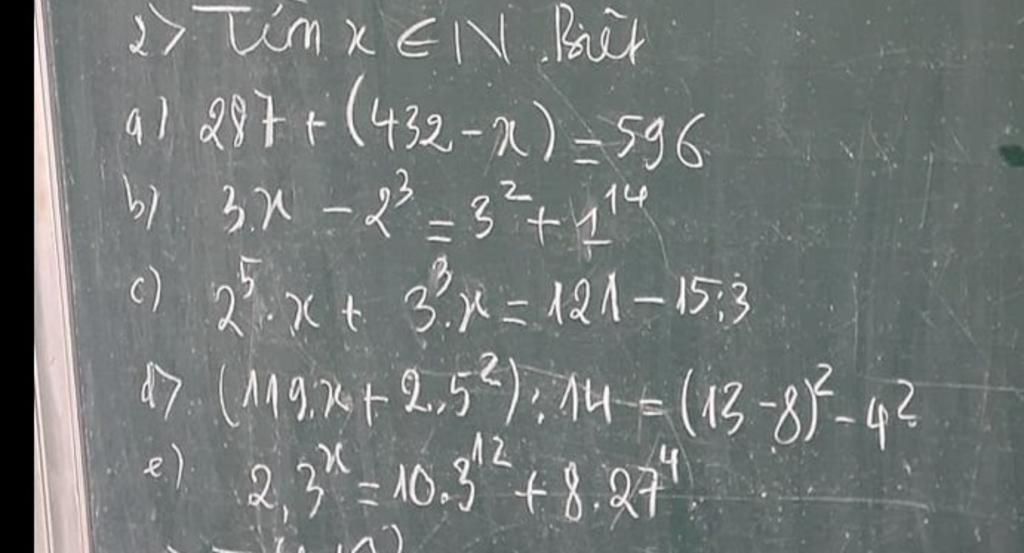 2> Tìm x ∈ N. Biết
a) 287 + (432 - x) = 596
b) 3x - 2³ = 3² + 1¹⁴
c) 2⁵.x + 3³.x = 121 - 15:3
d> (119.x + 2.5²) : 14 = (13 - 8)² - 4²
e) 2.3ˣ = 10.3¹² + 8.27⁴